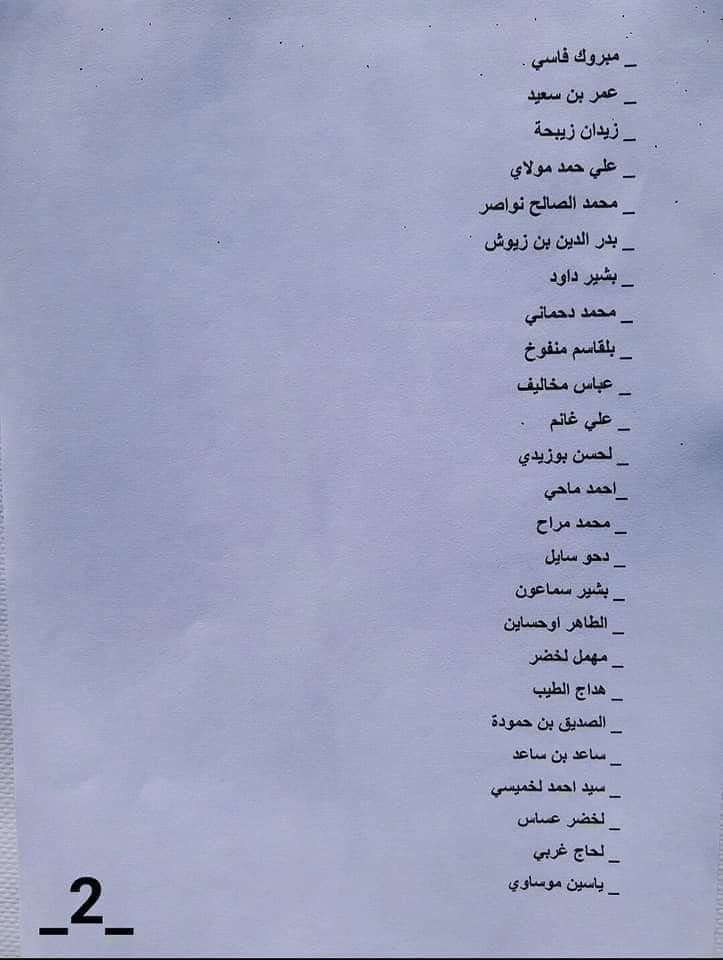 _ مبروك فاسي
_ عمر بن سعيد
_ زيدان زيبحة
_ علي حمد مولاي
_ محمد الصالح نواصر
_ بدر الدين بن زيوش
_ بشير داود
_ محمد دحماني
_ بلقاسم منفوخ
_ عباس مخاليف
_ علي غانم
_ لحسن بوزيدي
_احمد ماحي
_ محمد مراح
_ دحو سايل
_ بشير سماعون
_ الطاهر اوحساين
_ مهمل لخضر
_ هداج الطيب
_ الصديق بن حمودة
_ ساعد بن ساعد
_ سيد احمد لخميسي
_ لخضر عساس
_ لحاج غربي
_ ياسين موساوي
_2_